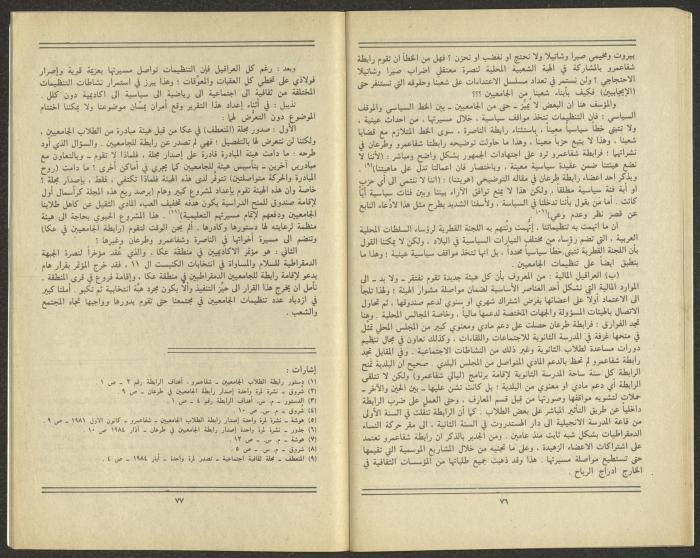 بيروت ومخيمي صبرا وشاتيلا ولا نحتج او نغضب او نحزن ؟ فهل من الخطأ ان تقوم رابطة
شفاعمرو بالمشاركة في الهيئة الشعبية المحلية لنصرة معتقلي اضراب صبرا وشاتيلا
الاحتجاجي ؟ ولن نستمر في تعداد مسلسل الاعتداءات على شعبنا وحقوقه التي تستنفر حتى
(الإيجابيين) فكيف بأبناء شعبنا من الجامعيين ؟؟؟
والمؤسف هنا ان البعض لا يميّز ـ حتى من الجامعيين ـ بين الخط السياسي والموقف
السياسي : فإن التنظيمات تتخذ مواقف سياسية ، خلال مسيرتها ، من احداث عينية ،
ولا تتبنى خطاً سياسياً معيناً ، باستثناء رابطة الناصرة ، سوى الخط المتلازم مع قضايا
شعبنا ، وهذا لا يتبع حزباً معيناً ، وهذا ما حاولت توضيحه رابطتا شفاعمرو وطرعان في
نشراتها : فرابطة شفاعمرو ترد على اجتهادات الجمهور بشكل واضح ومباشر : (لأننا لا
نضع هيئتنا ضمن عقيدة سياسية معينة ، وباختصار فان اعمالنا تدل على ماهيتنا)(٩)
ويذكر احد اعضاء رابطة طرعان في مقاله التوضيحي (هويتنا) : (اننا لا ننتمي الى أي حزب
او أية فئة سياسية مطلقاً ، ولكن هذا لا يمنع توافق الآراء بيننا وبين فئات سياسية أيّاً
كانت . أما من يقول بأننا تدخلنا في السياسة ، ولأسفنا الشديد يطرح مثل هذا الادعاء النابع
عن قصر نظر وعدم وعي)(١٠)
ان ما اتهمت به تنظيماتنا ، إتُّهمت وتُتهم به اللجنة القطرية لرؤساء السلطات المحلية
العربية ، التي تضم رؤساء من مختلف التيارات السياسية في البلاد ، ولكن لا يمكننا القول
بأن اللجنة القطرية تتبنى خطاً سياسياً محدداً ، بل انها تتخذ مواقف سياسية عينية ؛ وهذا ما
ينطبق ايضاً على تنظيمات الجامعيين .
(ب) العراقيل المالية : من المعروف بأن كل هيئة جديدة تقوم تفتقر ـ ولا بد ـ الى
الموارد المالية التي تشكل أحد العناصر الأساسية لضمان مواصلة مشوار الهيئة ؛ ولهذا تلجأ
الى الاعتماد أولاً على اعضائها بفرض اشتراك شهري او سنوي لدعم صندوقها ، ثم تحاول
الاتصال بالهيئات المسؤولة والجهات المختصة لدعمها مالياً ، وخاصة المجالس المحلية . وهنا
نجد الفوارق : فرابطة طرعان حصلت على دعم مادي ومعنوي كبير من المجلس المحلي تمثّل
في منحها غرفة في المدرسة الثانوية للاجتماعات واللقاءات ، وكذلك تعاون في مجال تنظيم
دورات مساعدة لطلاب الثانوية وغير ذلك من النشاطات الاجتماعية . وفي المقابل نجد
رابطة شفاعمرو لم تحظ بالدعم المادي المتواصل من المجلس البلدي . صحيح ان البلدية تمنح
الرابطة كل سنة ساحة المدرسة الثانوية لإقامة برنامج (ليالي شفاعمرو) ولكن لا تتلقى
الرابطة أي دعم مادي او معنوي من البلدية ؛ بل كانت تشن عليها ـ بين الحين والآخر ـ
حملات لتشويه مواقفها وصورتها من قبل قسم المعارف . وحتى العمل على ضرب الرابطة
داخلياً عن طريق التأثير المباشر على بعض الطلاب . كما أن الرابطة تنقلت في السنة الأولى
من قاعة المدرسة الانجيلية الى دار الهستدروت في السنة الثانية . الى مقر حركة النساء
الدمقراطيات بشكل شبه ثابت منذ عامين . ومن الجدير بالذكر ان رابطة شفاعمرو تعتمد
على اشتراكات الاعضاء الزهيدة ، وعلى ما تجنيه من خلال المشاريع الموسمية التي تقيمها
حتى تستطيع مواصلة مسيرتها . هذا وقد ذهبت جميع طلباتها من المؤسسات الثقافية في
الخارج ادراج الرياح .
٧٦
وبعد : رغم كل العراقيل فإن التنظيمات تواصل مسيرتها بعزيمة قوية وإصرار
فولاذي على تخطي كل العقبات والمعوّقات ؛ وهذا يبرز في استمرار نشاطات التنظيمات
المختلفة من ثقافية الى اجتماعية الى رياضية الى سياسية الى اكاديمية دون كلل .
تذييل : في أثناء إعداد هذا التقرير وقع أمران يمسّان موضوعنا ولا يمكننا اختتام
الموضوع دون التعرّض لهما :
الأول : صدور مجلة (المنعطف) في عكا من قبل هيئة مبادرة من الطلاب الجامعيين ،
ولكننا لن نتعرض لها بالتفصيل ؛ فهي لم تصدر عن رابطة للجامعيين . والسؤال الذي أود
طرحه : ما دامت هيئة المبادرة قادرة على إصدار مجلة ، فلماذا لا تقوم ـ وبالتعاون مع
مبادرين آخرين ـ بتأسيس هيئة للجامعيين كما يجري في أماكن أخرى ؟ ما دامت (روح
المبادرة والحركة متواصلتين) تتوفّر لدى هذه الهيئة فلماذا تكتفي ، فقط ، بإصدار مجلة ؟
خاصة وان هذه الهيئة تقوم بإعداد لمشروع كبير وهام (برصد ريع هذه المجلة كرأسمال أول
لإقامة صندوق للمنح الدراسية يكون هدفه تخفيف العبء المادي الثقيل عن كاهل طلابنا
ودفعهم لإتمام مسيرتهم التعليمية)(١١) . هذا المشروع الحيوي بحاجة الى هيئة
منظمة لرعايته لها دستورها وكادرها . ألم يحن الوقت لتقوم (رابطة الجامعيين في عكا)
وتنضم الى مسيرة أخواتها في الناصرة وشفاعمرو وطرعان وغيرها !
الثاني : هو مؤتمر الاكاديميين في منطقة عكا ، والذي عُقد مؤخراً لنصرة الجبهة
الدمقراطية للسلام والمساواة في انتخابات الكنيست ال ١١ . فقد خرج المؤتمر بقرار هام
يدعو لإقامة رابطة للجامعيين الدمقراطيين في منطقة عكا ، وإقامة فروع في قرى المنطقة .
نأمل ان يخرج هذا القرار الى حيّز التنفيذ وألا يكون مجرد هبّة انتخابية ثم تكبو . أملنا كبير
في ازدياد عدد تنظيمات الجامعيين في مجتمعنا حتى تقوم بدورها وواجبها تجاه المجتمع
والشعب .
إشارات :
(١) دستور رابطة الطلاب الجامعيين ـ شفاعمرو . أهداف الرابطة رقم ٢ ـ ص ١
(٢) شروق ـ نشرة لمرة واحدة إصدار رابطة الجامعيين في طرعان ـ ص ٩
(٣) الدستور ـ م . س . أهداف الرابطة رقم ٤ ـ ص ١ .
(٤) شروق ـ م . س . ص ١٠ .
(٥) هوشة ـ نشرة لمرة واحدة إصدار رابطة الطلاب الجامعيين ـ شفاعمرو ـ كانون الاول ١٩٨١ ـ ص ٩ .
(٦) جذور ـ نشرة لمرة واحدة إصدار رابطة الجامعيين في طرعان ـ آذار ١٩٨٤ ص ١٠ .
(٧) هوشة ـ م . س . ـ ص ١٢ .
(٨) شروق ـ م . س . ـ ص ٥ .
(٩) المنعطف ـ مجلة ثقافية اجتماعية ـ تصدر لمرة واحدة ـ أيار ١٩٨٤ ـ ص ٤ .
٧٧